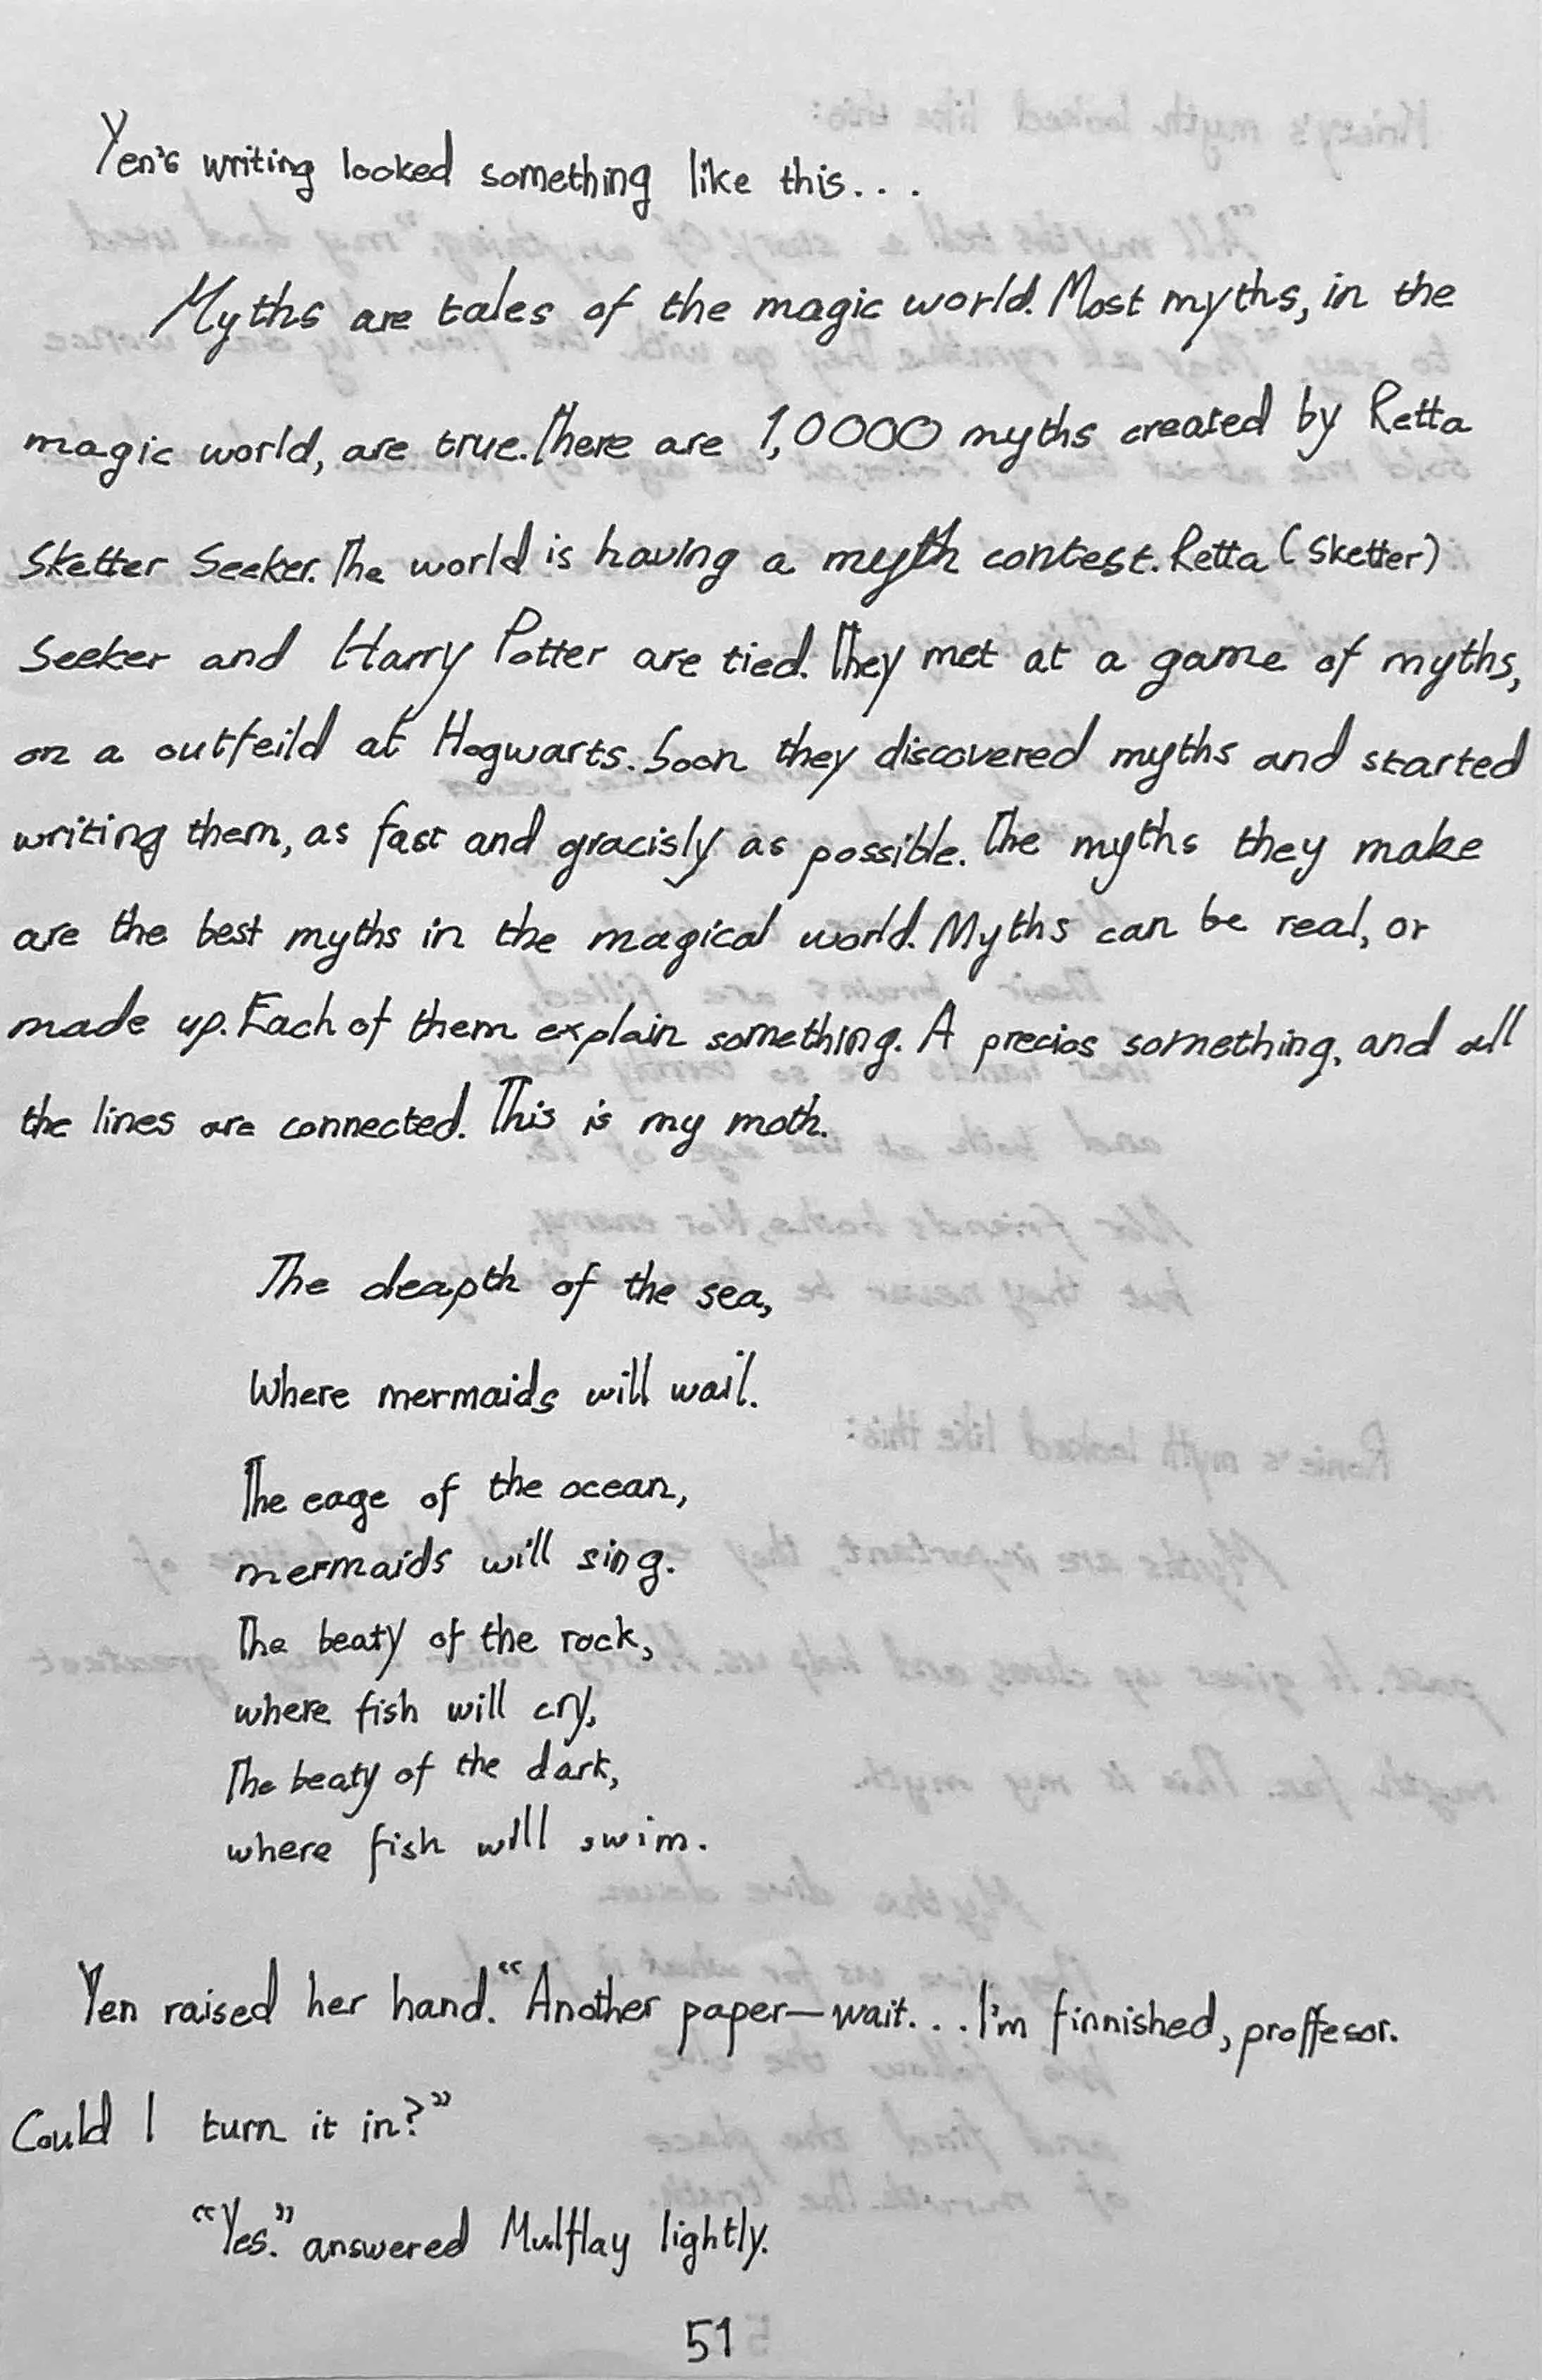 Yen's writing looked something like this...
Myths are tales of the magic world. Most myths, in the
magic world, are true. There are 1,0000 myths created by Retta
Sketter Seeker. The world is having a myth contest. Retta (Sketter)
Seeker and Harry Potter are tied. They met at a game of myths,
on a outfeild at Hogwarts. Soon they discovered myths and started
writing them, as fast and gracisly as possible. The myths they make
are the best myths in the magical world. Myths can be real, or
made up. Each of them explain something. A precios something, and all
the lines are connected. This is my moth.
The deapth of the sea,
Where mermaids will wail.
The eage of the ocean,
mermaids will sing.
The beaty of the rock,
where fish will cry,
The beaty of the dark,
where fish will swim.
Yen raised her hand. "Another paper—wait... I'm finnished, proffesor.
Could I turn it in?"
"Yes." answered Mulflay lightly.
51